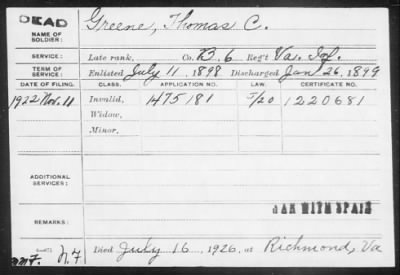 DEAD Greene, Thomas C.
NAME OF SOLDIER:
SERVICE: Late rank, Co. B. 6 Reg't Va. Inf.
TERM OF SERVICE: Enlisted July 11, 1898 Discharged Jan 26, 1899
DATE OF FILING. CLASS. APPLICATION NO. LAW. CERTIFICATE NO.
1922 Nov. 11 Invalid, 1475181 5/20 1220681
Widow,
Minor,
ADDITIONAL SERVICES:
WAR WITH SPAIN
REMARKS:
Died July 16, 1926, at Richmond, Va